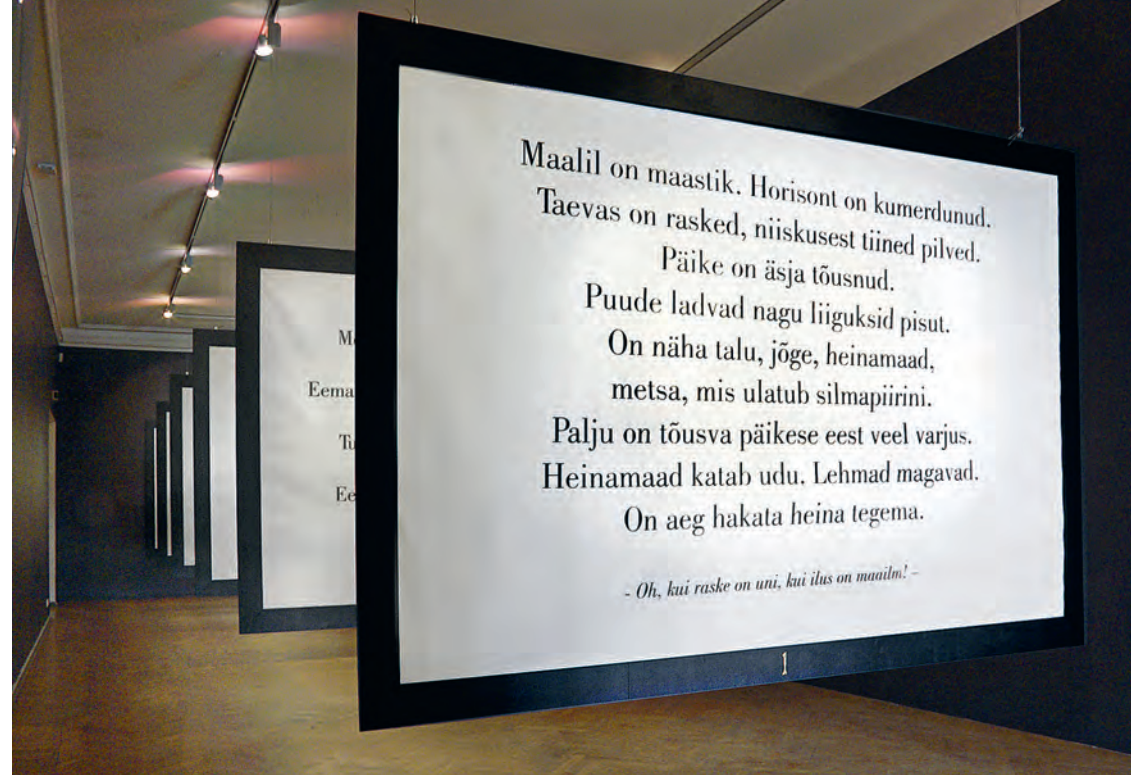 Maalil on maastik. Horisont on kumerdunud.
Taevas on rasked, niiskusest tiined pilved.
Päike on äsja tõusnud.
Puude ladvad nagu liiguksid pisut.
On näha talu, jõge, heinamaad,
metsa, mis ulatub silmapiirini.
Palju on tõusva päikese eest veel varjus.
Heinamaad katab udu. Lehmad magavad.
On aeg hakata heina tegema.
- Oh, kui raske on uni, kui ilus on maailm! -
1